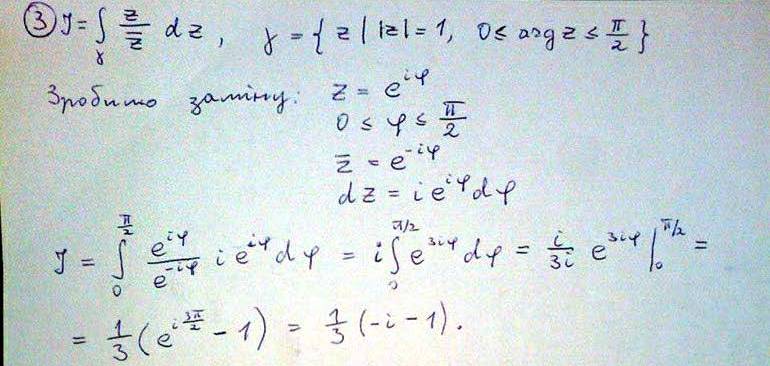 ③ J = ∫_γ z/z̄ dz, γ = { z | |z| = 1, 0 ≤ arg z ≤ π/2 }
Зробимо заміну: z = e^{iφ}
0 ≤ φ ≤ π/2
z̄ = e^{-iφ}
dz = i e^{iφ} dφ
J = ∫_0^{π/2} e^{iφ}/e^{-iφ} i e^{iφ} dφ = i ∫_0^{π/2} e^{3iφ} dφ = i/3i e^{3iφ} |_0^{π/2} =
= 1/3 (e^{i 3π/2} - 1) = 1/3 (-i - 1).